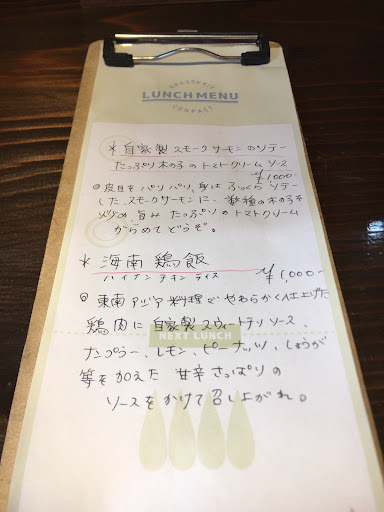 BRASSERIE
LUNCH MENU
COMPACT
* 自家製 スモークサーモンのソテー
たっぷり木の子のトマトクリームソース
¥1,000-
◎ 皮目をパリパリ、身は ふっくら ソテー
した、スモークサーモンに、数種の木の子を
旨み たっぷりのトマトクリーム
からめてどうぞ。
* 海南鶏飯
ハイナンチキンライス
¥1,000-
◎ 東南アジア料理で やわらかく仕上げた
鶏肉に自家製スウィートチリソース、
NEXT LUNCH
ナンプラー、レモン、ピーナッツ、しょうが
等を加えた 甘辛さっぱりの
ソースをかけて召し上がれ。